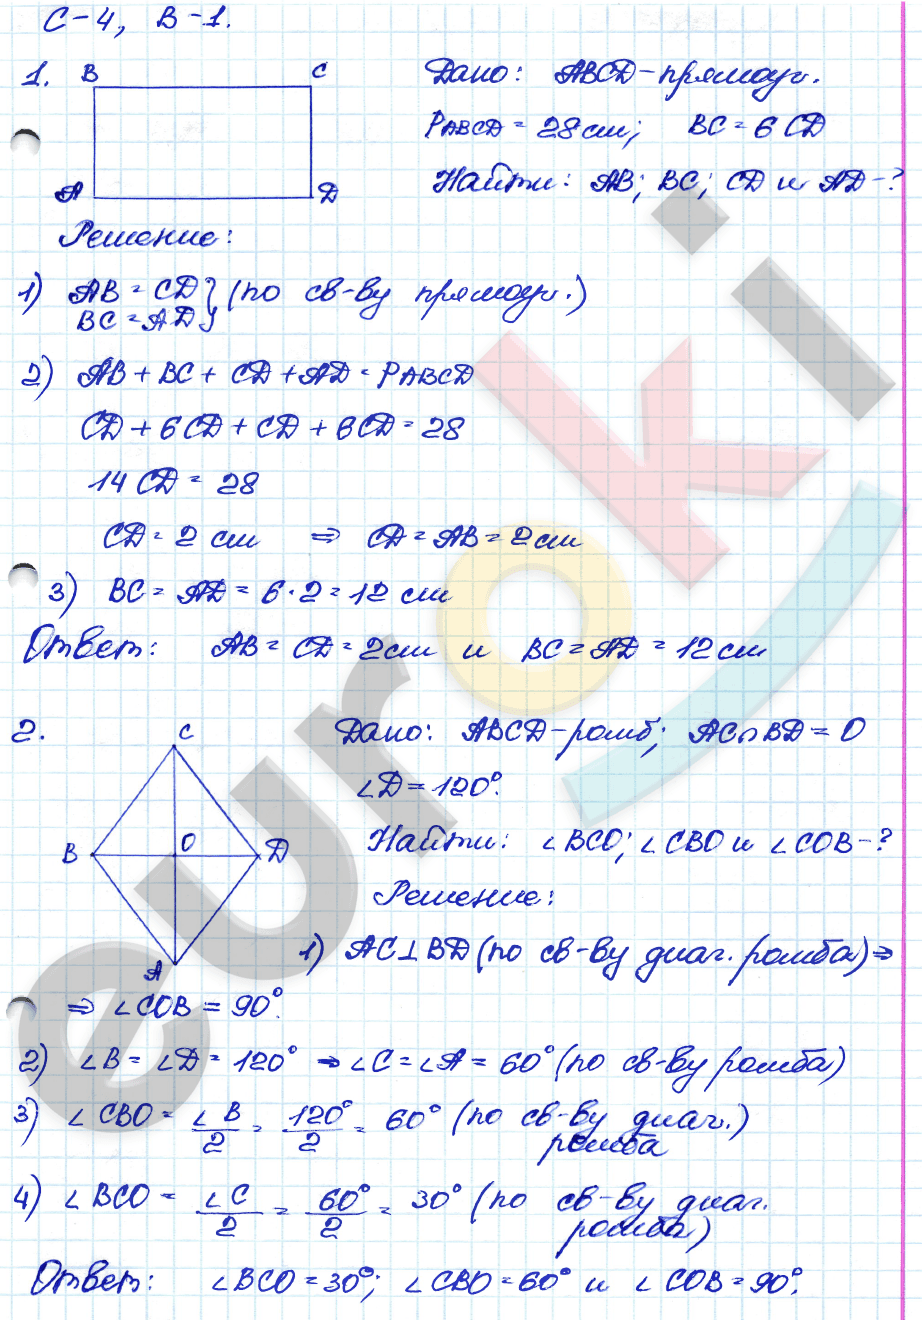 С-4, В-1.
1. В С
А D
Дано: ABCD-прямоуг.
PABCD = 28 см; BC = 6 CD
Найти: AB; BC; CD и AD-?
Решение:
1) AB = CD } (по св-ву прямоуг.)
BC = AD
2) AB + BC + CD + AD = PABCD
CD + 6CD + CD + 6CD = 28
14 CD = 28
CD = 2 см ⇒ CD = AB = 2 см
3) BC = AD = 6·2 = 12 см
Ответ: AB = CD = 2 см и BC = AD = 12 см
2. C
B O D
A
Дано: ABCD-ромб; AC∩BD = O
∠D = 120°.
Найти: ∠BCO; ∠CBO и ∠COB-?
Решение:
1) AC⊥BD (по св-ву диаг. ромба) ⇒
⇒ ∠COB = 90°.
2) ∠B = ∠D = 120° ⇒ ∠C = ∠A = 60° (по св-ву ромба)
3) ∠CBO = ∠B/2 = 120°/2 = 60° (по св-ву диаг.)
ромба
4) ∠BCO = ∠C/2 = 60°/2 = 30° (по св-ву диаг.
ромба)
Ответ: ∠BCO = 30°; ∠CBO = 60° и ∠COB = 90°.
euroki